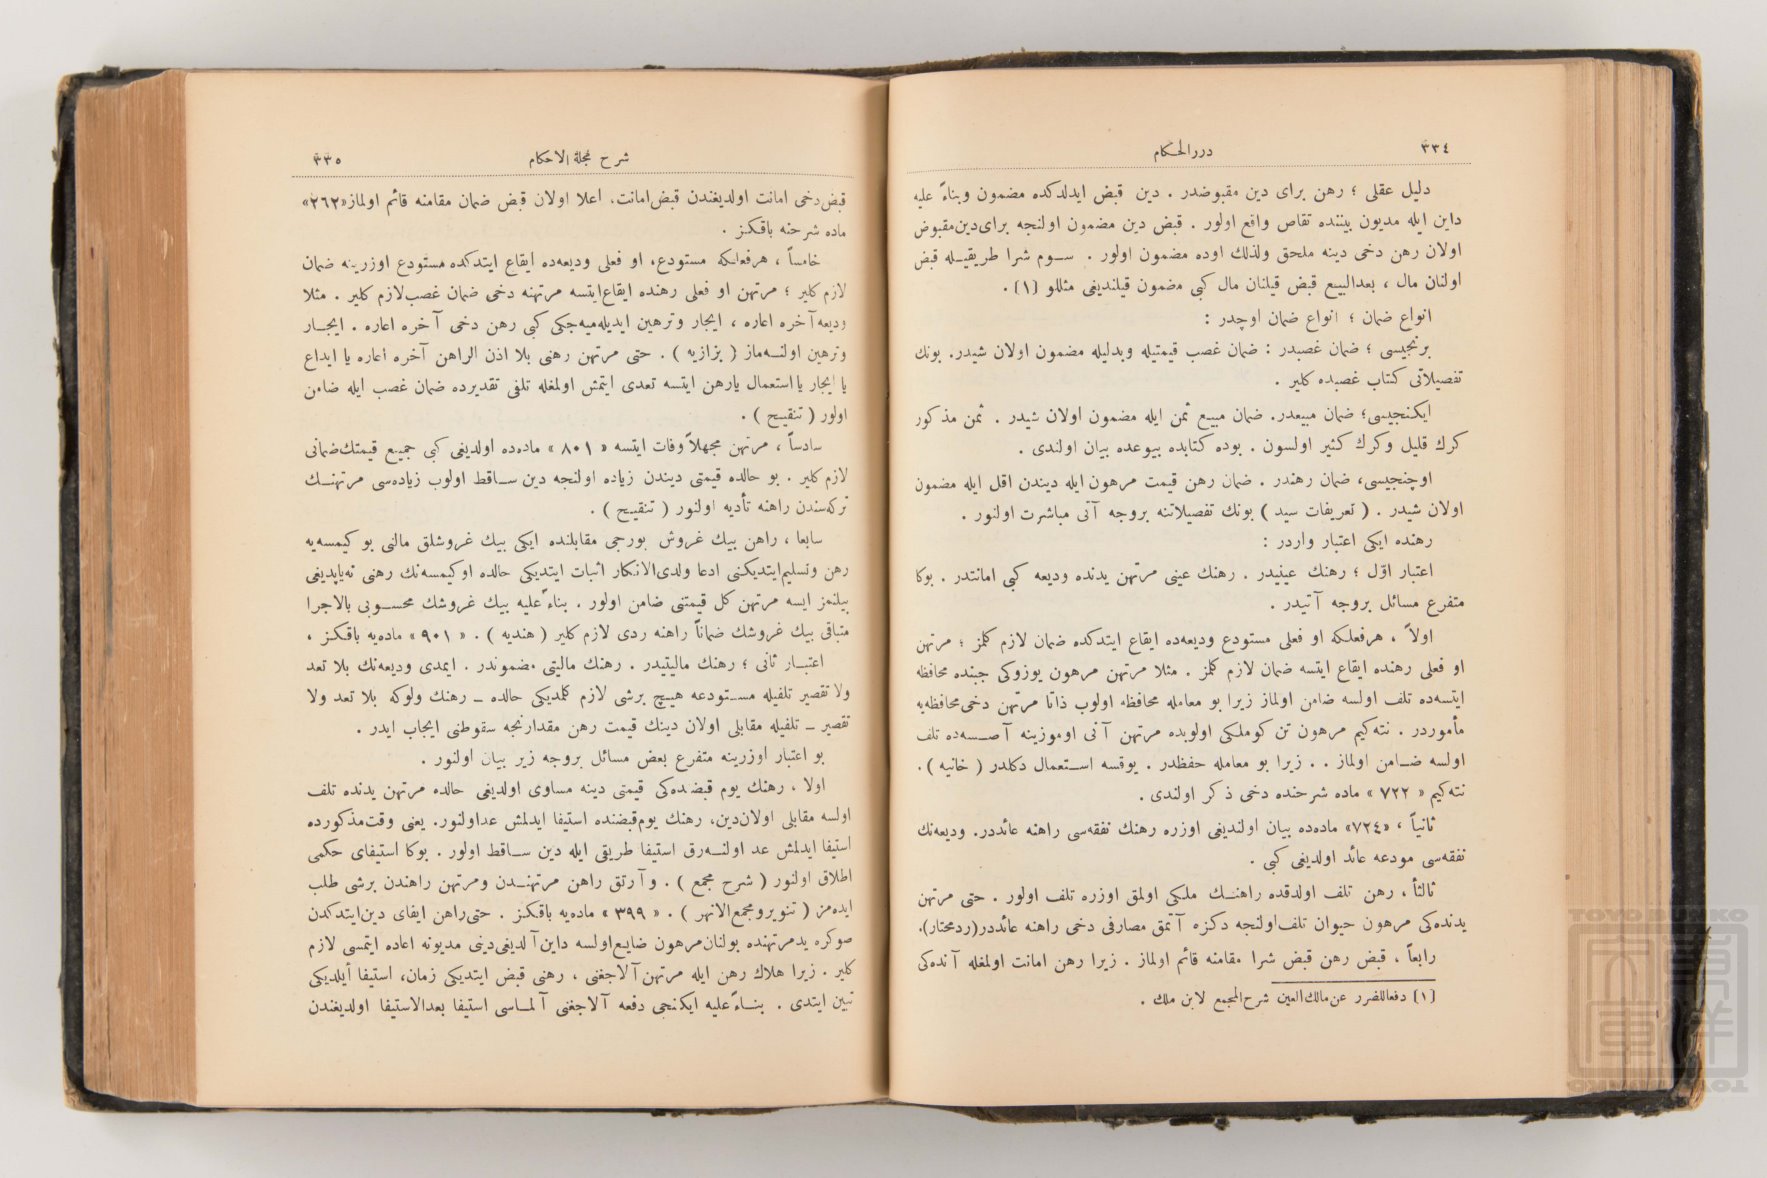 ٣٣٤
دررالحكام
دليل عقلى ؛ رهن براى دين مقبوضدر . دين قبض ايدلدكده مضمون وبناءً عليه
داين ايله مديون بيننده تقاص واقع اولور . قبض دين مضمون اولنجه براى‌دين‌مقبوض
اولان رهن دخى دينه ملحق ولذلك اوده مضمون اولور . سـوم شرا طريقيـله قبض
اولنان مال ، بعدالبيع قبض قيلنان مال كبى مضمون قيلنديغى مثللو [١] .
انواع ضمان ؛ انواع ضمان اوچدر :
برنجيسى ؛ ضمان غصبدر : ضمان غصب قيمتيله وبدليله مضمون اولان شيدر. بونك
تفصيلاتى كتاب غصبده كلير .
ايكنجيسى؛ ضمان مبيعدر. ضمان مبيع ثمن ايله مضمون اولان شيدر . ثمن مذكور
كرك قليل وكرك كثير اولسون . بوده كتابده بيوعده بيان اولندى .
اوچنجيسى، ضمان رهندر . ضمان رهن قيمت مرهون ايله ديندن اقل ايله مضمون
اولان شيدر . ( تعريفات سيد ) بونك تفصيلاتنه بروجه آتى مباشرت اولنور .
رهنده ايكى اعتبار واردر :
اعتبار اوّل ؛ رهنك عينيدر . رهنك عينى مرتهن يدنده وديعه كبى امانتدر . بوكا
متفرع مسائل بروجه آتيدر .
اولاً ، هرفعلكه او فعلى مستودع وديعه‌ده ايقاع ايتدكده ضمان لازم كلمز ؛ مرتهن
او فعلى رهنده ايقاع ايتسه ضمان لازم كلمز . مثلا مرتهن مرهون يوزوكى جبنده محافظه
ايتسه‌ده تلف اولسه ضامن اولماز زيرا بو معامله محافظه اولوب ذاتا مرتهن دخى‌محافظه‌يه
مأموردر . نته‌كيم مرهون تن كوملكى اولوبده مرتهن آنى اوموزينه آصـسه‌ده تلف
اولسه ضـامن اولماز . . زيرا بو معامله حفظدر . يوقسه اسـتعمال دكلدر ( خانيه ) .
نته‌كيم « ٧٢٢ » ماده شرحنده دخى ذكر اولندى .
ثانياً ، «٧٢٤» ماده‌ده بيان اولنديغى اوزره رهنك نفقه‌سى راهنه عائددر. وديعه‌نك
نفقه‌سى مودعه عائد اولديغى كبى .
ثالثاً ، رهن تلف اولدقده راهنـك ملكى اولمق اوزره تلف اولور . حتى مرتهن
يدنده‌كى مرهون حيوان تلف‌اولنجه دكزه آتمق مصارفى دخى راهنه عائددر(ردمحتار).
رابعاً ، قبض رهن قبض شرا مقامنه قائم اولماز . زيرا رهن امانت اولمغله آنده‌كى
[١] دفعاللضرر عن‌مالك‌العين شرح‌المجمع لابن ملك .
شرح مجلة الاحكام
٣٣٥
قبض‌دخى امانت اولديغندن قبض‌امانت، اعلا اولان قبض ضمان مقامنه قائم اولماز«٢٦٢»
ماده شرحنه باقكز .
خامساً ، هرفعلكه مستودع، او فعلى وديعه‌ده ايقاع ايتدكده مستودع اوزرينه ضمان
لازم كلير ؛ مرتهن او فعلى رهنده ايقاع‌ايتسه مرتهنه دخى ضمان غصب‌لازم كلير . مثلا
وديعه آخره اعاره ، ايجار وترهين ايديله‌ميه‌جكى كبى رهن دخى آخره اعاره . ايجـار
وترهين اولنـه‌ماز ( بزازيه ) . حتى مرتهن رهنى بلا اذن الراهن آخره اعاره يا ايداع
يا ايجار يا استعمال يارهن ايتسه تعدى ايتمش اولمغله تلفى تقديرده ضمان غصب ايله ضامن
اولور ( تنقيح ) .
سادساً ، مرتهن مجهلاً وفات ايتسه « ٨٠١ » ماده‌ده اولديغى كبى جميع قيمتك‌ضمانى
لازم كلير . بو حالده قيمتى ديندن زياده اولنجه دين سـاقط اولوب زياده‌سى مرتهنـك
تركه‌سندن راهنه تأديه اولنور ( تنقيح ) .
سابعا ، راهن بيك غروش بورجى مقابلنده ايكى بيك غروشلق مالنى بو كيمسه‌يه
رهن وتسليم‌ايتديكنى ادعا ولدى‌الانكار اثبات ايتديكى حالده اوكيمسه‌نك رهنى نه‌ياپديغى
بيلنمز ايسه مرتهن كل قيمتنى ضامن اولور . بناءً عليه بيك غروشك محسـوبى بالاجرا
متباقى بيك غروشك ضماناً راهنه ردى لازم كلير ( هنديه ) . « ٩٠١ » ماده‌يه باقكز .
اعتبـار ثانى ؛ رهنك ماليتيدر . رهنك ماليتى مضموندر . ايمدى وديعه‌نك بلا تعد
ولا تقصير تلفيله مسـتودعه هيچ برشى لازم كلمديكى حالده ــ رهنك ولوكه بلا تعد ولا
تقصير ــ تلفيله مقابلى اولان دينك قيمت رهن مقدارنجه سقوطنى ايجاب ايدر .
بو اعتبار اوزرينه متفرع بعض مسائل بروجه زير بيان اولنور .
اولا ، رهنك يوم قبضده‌كى قيمتى دينه مساوى اولديغى حالده مرتهن يدنده تلف
اولسه مقابلى اولان‌دين، رهنك يوم‌قبضنده استيفا ايدلمش عداولنور. يعنى وقت‌مذكورده
استيفا ايدلمش عد اولنـه‌رق استيفا طريقى ايله دين سـاقط اولور . بوكا استيفاى حكمى
اطلاق اولنور ( شرح مجمع ) . وآرتق راهن مرتهنـدن ومرتهن راهندن برشى طلب
ايده‌مز ( تنويرومجمع‌الانهر ) . « ٣٩٩ » ماده‌يه باقكز . حتى‌راهن ايفاى دين‌ايتدكدن
صوكره يدمرتهنده بولنان‌مرهون ضايع‌اولسه داين‌آلديغى‌دينى مديونه اعاده ايتمسى لازم
كلير . زيرا هلاك رهن ايله مرتهن‌آلاجغنى ، رهنى قبض ايتديكى زمان، استيفا أيلديكى
تبين ايتدى . بنـاءً عليه ايكنجى دفعه آلاجغنى آلمـاسى استيفا بعدالاستيفا اولديغندن
TOYO BUNKO